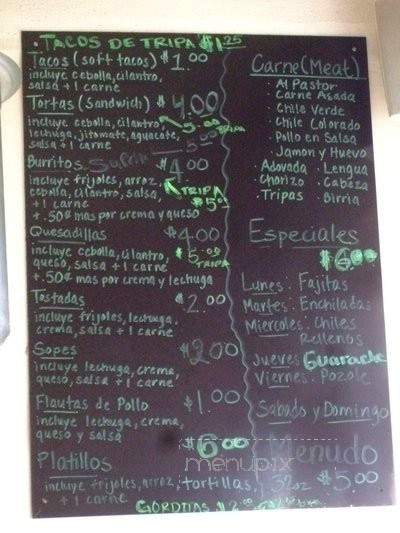 TACOS DE TRIPA $1.25
Tacos (soft tacos) $1.00
incluye cebolla, cilantro,
salsa + 1 carne
Tortas (Sandwich) $4.00
incluye cebolla, cilantro
lechuga, jitomate, aguacate,
salsa + 1 carne
5.00 TRIPA
5.00
Burritos $4.00
incluye frijoles, arroz,
cebolla, cilantro, salsa,
+ 1 carne
TRIPA
$5.00
+.50¢ mas por crema y queso
Quesadillas $4.00
incluye cebolla, cilantro,
queso, salsa + 1 carne
$5.00
TRIPA
+.50¢ mas por crema y lechuga
Tostadas $2.00
incluye frijoles, lechuga,
crema, salsa + 1 carne
Sopes $2.00
incluye lechuga, crema,
queso, salsa + 1 carne
Flautas de Pollo $1.00
incluye lechuga, crema,
queso y salsa
Platillos $6.00
incluye frijoles, arroz, tortillas,
+ 1 carne
GORDITAS $2.00
Carne (Meat)
· Al Pastor
· Carne Asada
· Chile Verde
· Chile Colorado
· Pollo en Salsa
· Jamon y Huevo
· Adovada · Lengua
· Chorizo · Cabeza
· Tripas · Birria
Especiales
$6.00
Lunes: Fajitas
Martes: Enchiladas
Miercoles: Chiles
Rellenos
Jueves: Guarache
Viernes: Pozole
Sabado y Domingo
Menudo
32oz $5.00
menupix